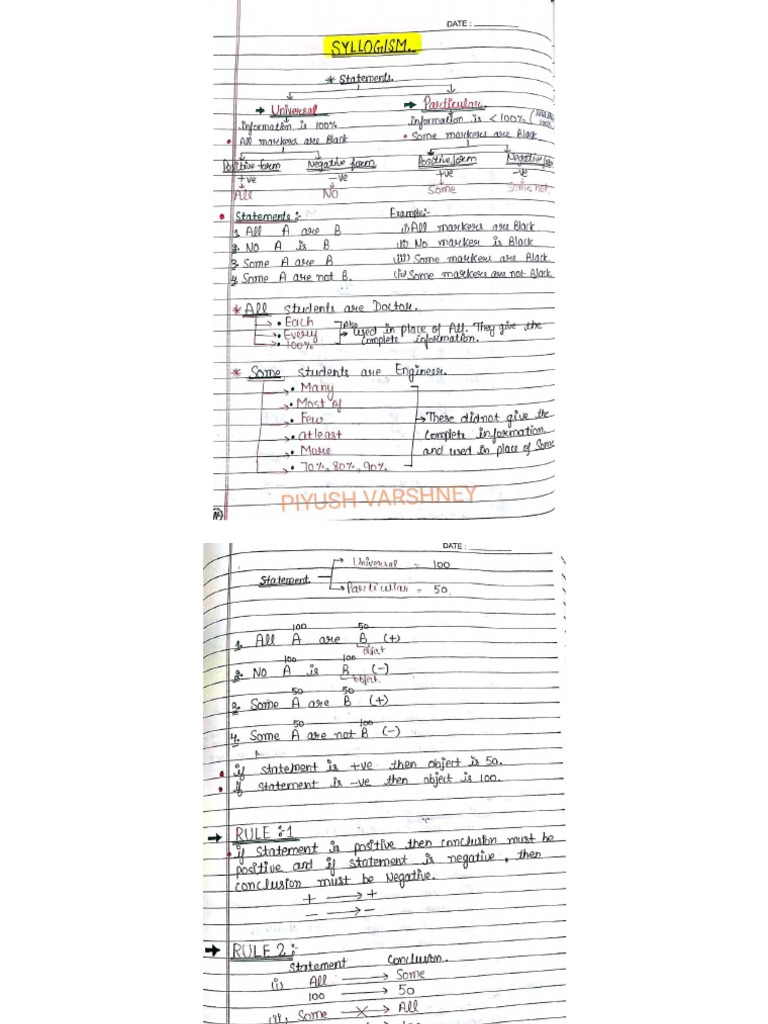 DATE :
SYLLOGISM.
* Statements.
→ Universal → Particular.
information is 100% information is < 100%
• All markers are Black • Some markers are Black
Positive form Negative form Positive form Negative
+ve -ve +ve -ve
All NO Some Some not
• Statements :- Example:-
1. All A are B (i) All markers are Black
2. NO A is B (ii) No marker is Black
3. Some A are B (iii) Some markers are Black
4. Some A are not B. (iv) Some markers are not Black
* All students are Doctor.
• Each Also
• Every used in place of All. They give the
• 100% complete information.
* Some students are Engineer.
• Many
• Most of
• Few These didnot give the
• atleast complete information
• More and used in place of Some
• 70%, 80%, 90%.
PIYUSH VARSHNEY
DATE :
Universal = 100
Statement.
Particular = 50.
100 50
1. All A are B (+)
object
100 100
2. NO A is B (-)
object.
50 50
3. Some A are B (+)
50 100
4. Some A are not B (-)
• if statement is +ve then object is 50.
• if statement is -ve then object is 100.
→ RULE :1
• if statement is positive then conclusion must be
positive and if statement is negative, then
conclusion must be Negative.
+ → +
- → -
→ RULE 2 :-
Statement Conclusion.
(i) All → Some
100 → 50
(ii) Some → All